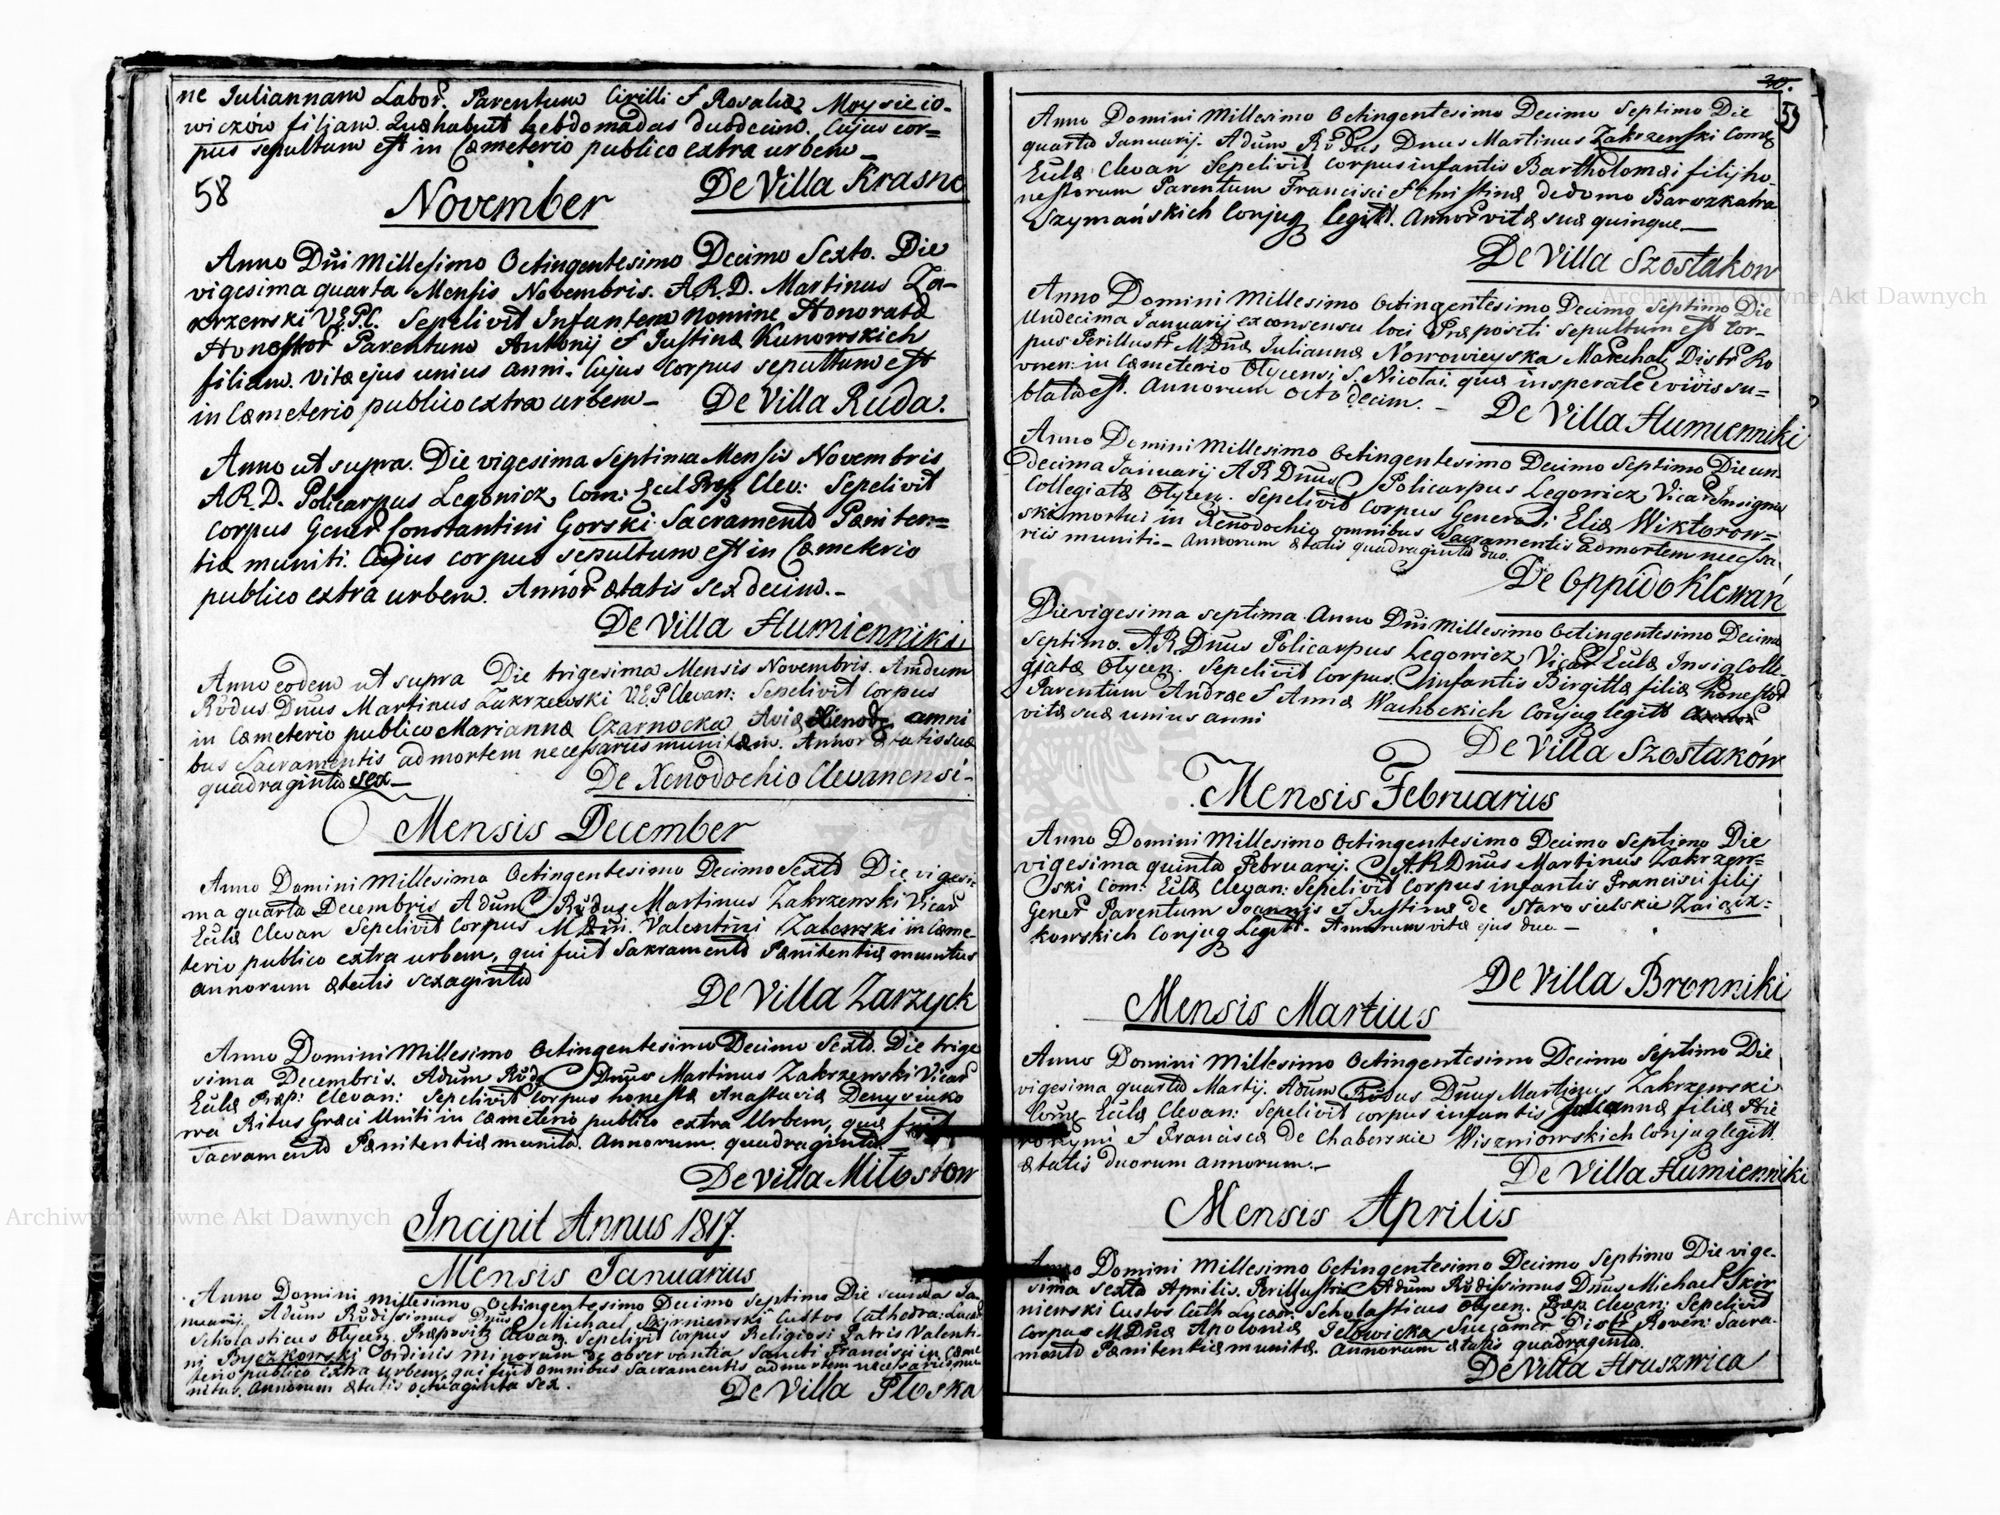 ne Juliannam Labor. Parentum Cirilli et Rosaliæ Moysieio-
wiczów filiam. Quæ habuit hebdomadas duodecim. Cujus cor=
pus sepultum est in Cæmeterio publico extra urbem_
De Villa Krasne
58
November
Anno Dñi Millesimo Octingentesimo Decimo Sexto. Die
vigesima quarta Mensis Novembris. A.R.D. Martinus Za-
krzewski V.E.P.C. Sepelivit Infantem nomine Honorata
Honestor Parentum Antonij et Justinæ Kunowskich
filiam. vitæ ejus unius anni. Cujus Corpus sepultum est
in Cæmeterio publico extra urbem_
De Villa Ruda.
Anno ut supra. Die vigesima septima Mensis Novembris
A.R.D. Policarpus Legowicz, Com: Ecul Præp Clev: Sepelivit
corpus Gener Constantini Gorski Sacramento Pæniten=
tiæ muniti. Cujus corpus sepultum est in Cæmeterio
publico extra urbem. Annor ætatis sex decim._
De Villa Humienniki
Anno eodem ut supra Die trigesima Mensis Novembris. Amdum
Rvdus Dnus Martinus Zakrzewski V.E.P.Clevan: Sepelivit Corpus
in Cæmeterio publico Mariannæ Czarnocka Aviæ Xenod omni
bus Sacramentis ad mortem necessariis munitam. Annor ætatis suæ
quadraginta sex_
De Xenodochio Clevanensi.
Mensis December
Anno Domini Millesimo Octingentesimo Decimo Sexto Die vigesi-
ma quarta Decembris Adum Rvdus Martinus Zakrzewski Vicar
Eclæ Clevan Sepelivit Corpus M Dni. Valentini Zalewski in Cæme-
terio publico extra urbem, qui fuit Sakramento Pænitentiæ munitus
annorum ætatis sexaginta
De Villa Zarzyck
Anno Domini Millesimo Octingentesimo Decimo Sexto. Die trige
sima Decembris. Adum Rvds Dnus Martinus Zakrzewski Vicar
Eclæ Præp: Clevan: Sepelivit Corpus honestæ Anastasiæ Denysiuko
wa Ritus Græci Uniti in Cæmeterio publico extra Urbem, quæ fuit
Sacramento Pænitentiæ munita. Annorum quadraginta
De Villa Miłostow
Incipit Annus 1817.
Mensis Januarius
Anno Domini Millesimo Octingentesimo Decimo Septimo Die secunda Ja-
nuarij, Adum Rvdissimus Dnus Michael Skirniewski Custos Cathedra: Lucao
Scholasticus Olycen. Præposit Clevan Sepelivit Corpus Religiosi Patris Valenti-
ni Byczkowski Ordinis Minorum de observantia Sancti Francisci in Cæme
terio publico extra urbem, qui fuit omnibus Sacramentis ad mortem necessariis mu
nitus. Annorum ætatis octuaginta sex.
De Villa Płoska
30.
59
Anno Domini Millesimo Octingentesimo Decimo Septimo Die
quarta Januarij. Adum Rvdus Dnus Martinus Zakrzewski Come
Eclæ Clevan Sepelivit Corpus infantis Bartholomæi filij ho-
nestorum Parentum Francisci et Christinæ de domo Barszkatra
Szymańskich Conjug legitt. Annor vitæ suæ quinque_
De Villa Szostakow
Anno Domini Millesimo Octingentesimo Decimo Septimo Die
Undecima Januarij ex consensu loci Præpositi sepultum est Cor-
pus Perillustr M Dnæ Juliannæ Nowowieyska Marchal: Distr Ro
vnen: in Cæmeterio Olycensi S. Nicolai. quæ insperate e vivis su=
blata est. Annorum octo decim. -
De Villa Humienniki
Anno Domini Millesimo Octingentesimo Decimo Septimo Die un-
decima Januarij A R Dnus Policarpus Legowicz Vicar Insignis
Collegiatæ Olycen. Sepelivit Corpus Generosi Eliæ Wiktorow=
ski mortui in Xenodochio omnibus Sacramentis ad mortem necessa
riis muniti._ Annorum ætatis quadraginta duo.
De Oppido Klewań
Die vigesima septima Anno Dni Millesimo Octingentesimo Decimo
Septimo. A R Dnus Policarpus Legowicz Vicar Eclæ Insig Colle-
giatæ Olycen. Sepelivit Corpus infantis Birgittæ filiæ honestor
Parentum Andræ et Annæ Wachockich Conjug legitt
vitæ suæ unius anni
De Villa Szostaków
Mensis Februarius
Anno Domini Millesimo Octingentesimo Decimo Septimo Die
vigesima quinta Februarij. A.R.Dnus Martinus Zakrzew=
ski Com: Eclæ Clevan: Sepelivit Corpus infantis Francisci filij
Gener Parentum Joannis et Justinæ de Starosielskie Zaiącz=
kowskich Conjug Legitt. Annorum vitæ ejus duo_
De Villa Bronniki
Mensis Martius
Anno Domini Millesimo Octingentesimo Decimo Septimo Die
vigesima quarta Martij. Adum Rvdus Dnus Martinus Zakrzewski
Come Eclæ Clevan: Sepelivit corpus infantis Juliannæ filiæ Hie
ronymi et Franciscæ de Chaberskie Wiszniowskich Conjug legitt.
ætatis duorum annorum._
De Villa Humienniki
Mensis Aprilis
Anno Domini Millesimo Octingentesimo Decimo Septimo Die vige-
sima sexta Aprilis. Perillustris Adum Rvdissimus Dnus Michael Skir
niewski Custos Cath Luceor Scholasticus Olycen. Præp Clevan: Sepelivit
Corpus M Dnæ Apoloniæ Jełowicka Succamer Distr Roven: Sacra-
mento Pænitentiæ munitæ. Annorum ætatis quadraginta.
De Villa Hruszwica
Archiwum Główne Akt Dawnych
Archiwum Główne Akt Dawnych